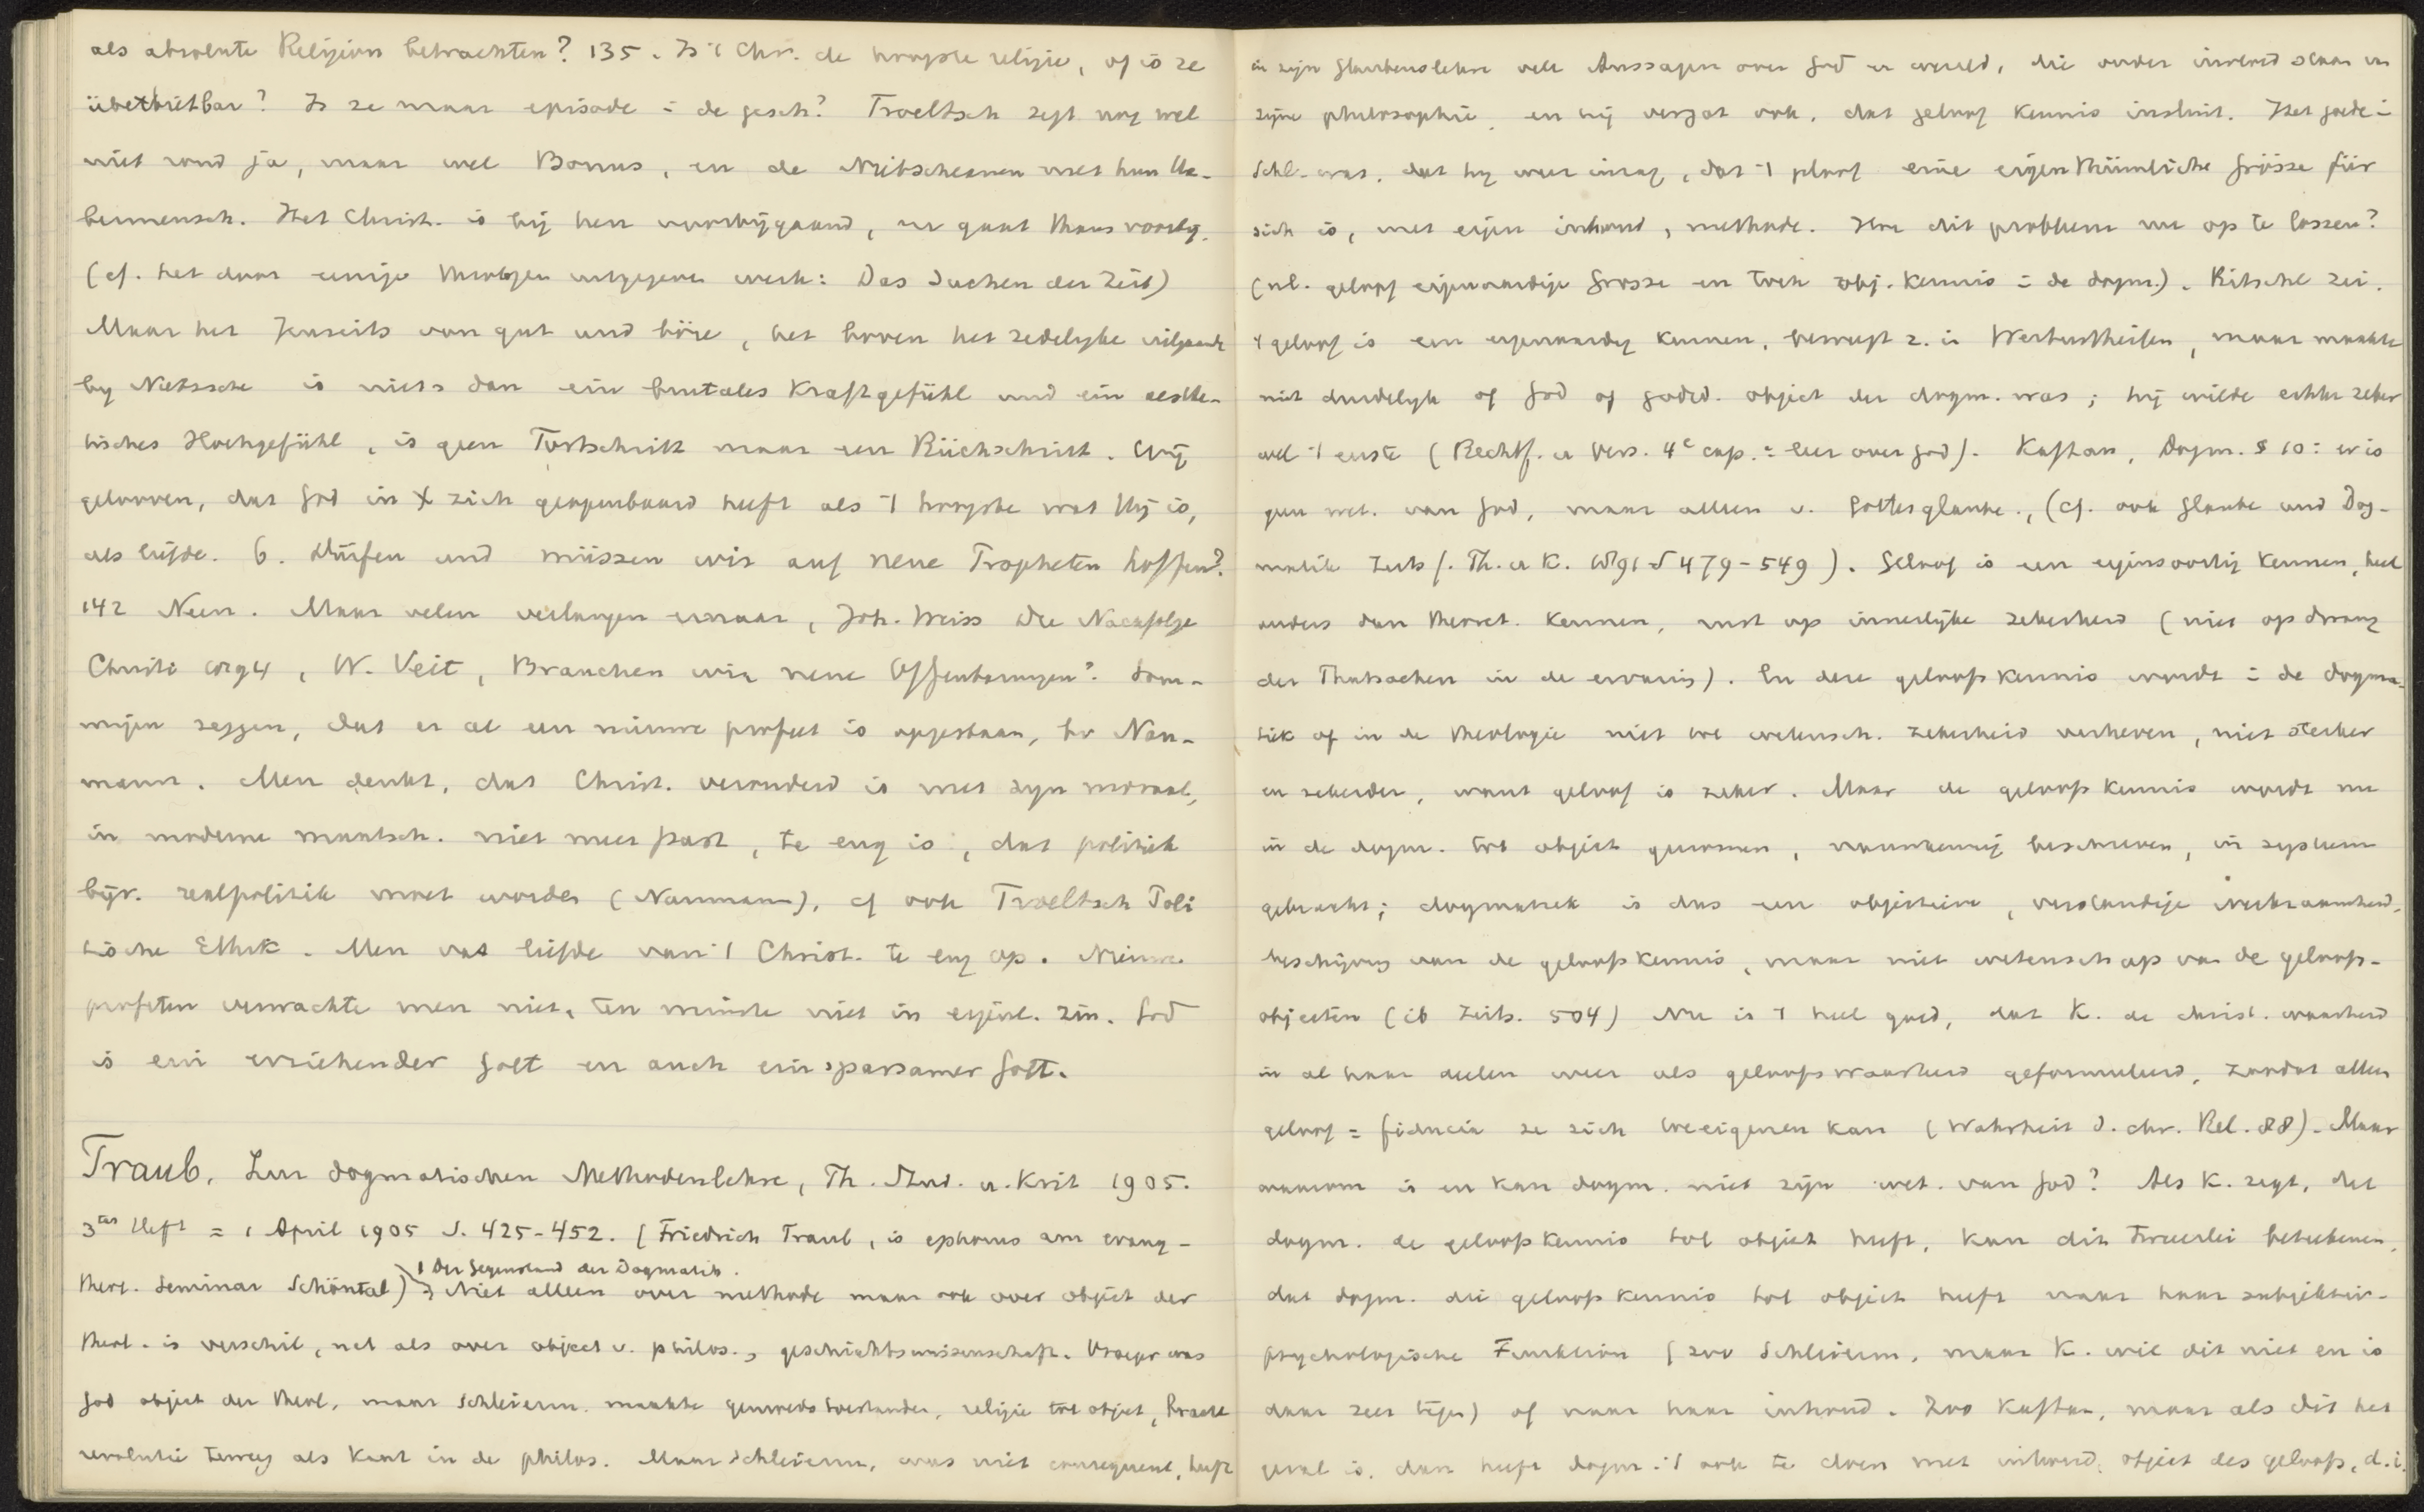 als absolute Religion betrachten? 135. Is 't Chr. de hoogste religie, of is ze
überbietbar? Is ze maar episode in de gesch? Troeltsch zegt nog wel
niet rond ja, maar wel Bonus, en de Nietscheanen met hun Ue-
bermensch. Het Christ. is bij hen voorbijgaand, en gaat thans voorbij.
(cf. het door eenige theologen uitgegeven werk: Das Suchen der Zeit)
Maar het Jenseits von gut und böse, het boven het zedelijke uitgaande
by Nietzsche is niets dan ein brutales Kraftgefühl und ein aesthe-
tisches Hochgefühl, is geen Fortschritt maar een Rückschritt. Wij
gelooven, dat God in X zich geopenbaard heeft als 't hoogste wat Hij is,
als liefde. 6. Dürfen und müssen wir auf neue Propheten hoffen?
142 Neen. Maar velen verlangen ernaar, Joh. Weiss Die Nachfolge
Christi W. Veit, Brauchen wir neue Offenbarungen? Som-
migen zeggen, dat er al een nieuwe profeet is opgestaan, bv Nau-
mann. Men denkt, dat Christ. verouderd is met zyn moraal,
in moderne maatsch. niet meer past, te eng is, dat politiek
bijv. realpolitik moet worden (Naumann), cf ook Troeltsch Poli
tische Ethik. Men vat liefde van 't Christ. te eng op. Nieuwe
profeten verwachte men niet, ten minste niet in eigenl. zin. God
is ein erziehender Gott en auch ein sparsamer Gott.
Traub, Zur dogmatischen Methodenlehre, Th. Stud. u. Krit 1905.
3tes Heft = 1 April 1905 S. 425-452. (Friedrich Traub, is ephorus am evang-
1 Der Gegenstand der Dogmatik.
theol. Seminar Schöntal) Niet alleen over methode maar ook over object der
theol. is verschil, net als over object v. philos., geschichtswissenschaft. Vroeger was
God object der theol, maar Schleierm. maakte religie tot object, bracht
revolutie teweeg als Kant in de philos. Maar Schleierm. was niet consequent, heeft
in zijn Glaubenslehre vele Aussagen over God en wereld, die onder invloed staan v.
zijne philosophie, en hij vergat ook, dat geloof kennis insluit. Het goede in
Schl. was, dat hy weer inzag, dat 't geloof eine eigenthümliche Grösse für
sich is, met eigen inhoud, methode. Hoe dit probleem nu op te lossen?
(nl. geloof eigenaardige Grosse en toch obj. kennis in de dogm.). Ritschl zei,
't geloof is een eigenaardig kennen, beweegt z. in Werturtheilen, maar maakte
niet duidelyk of God of godsd. object der dogm. was; hij wilde echter zeker
wel 't eerste (Rechtf. u Vers. 4e cap. = leer over God). Kaftan, Dogm. § 10: er is
geen wet. van God, maar alleen v. Gottesglaube, (cf. ook Glaube und Dog-
matik Zeits f. Th. u K. 1891 S 479-549). Geloof is een eigensoortig kennen, heel
anders dan theoret. kennen, rust op innerlijke zekerheid (niet op drang
der Thatsachen in de ervaring). En deze geloofskennis wordt in de dogma-
tiek of in de theologie niet tot wetensch. zekerheid verheven, niet sterker
en zekerder, want geloof is zeker. Maar de geloofskennis wordt nu
in de dogm. tot object genomen, nauwkeurig beschreven, in systeem
gebracht; dogmatiek is dus een objectieve, verstandige
beschijving van de geloofskennis, maar niet wetenschap van de geloofs-
objecten (ib Zeits. 504) Nu is 't heel goed, dat K. de christ. waarheid
in al haar deelen weer als geloofswaarheid geformuleerd, zoodat alleen
geloof = fiducia ze zich toeeigenen kan (Wahrheit d. chr. Rel. 88). Maar
waarom is en kan dogm. niet zijn wet. van God? Als K. zegt, dat
dogm. de geloofskennis tot object heeft, kan dit tweeerlei beteekenen,
dat dogm. die geloofskennis tot object heeft naar haar subjektiv-
psychologische Funktion (zoo Schleierm. maar K. wil dit niet en is
daar zeer tegen) of naar haar inhoud. Zoo Kaftan, maar als dit het
geval is, dan heeft dogm. 't ook te doen met inhoud, object des geloofs, d.i.